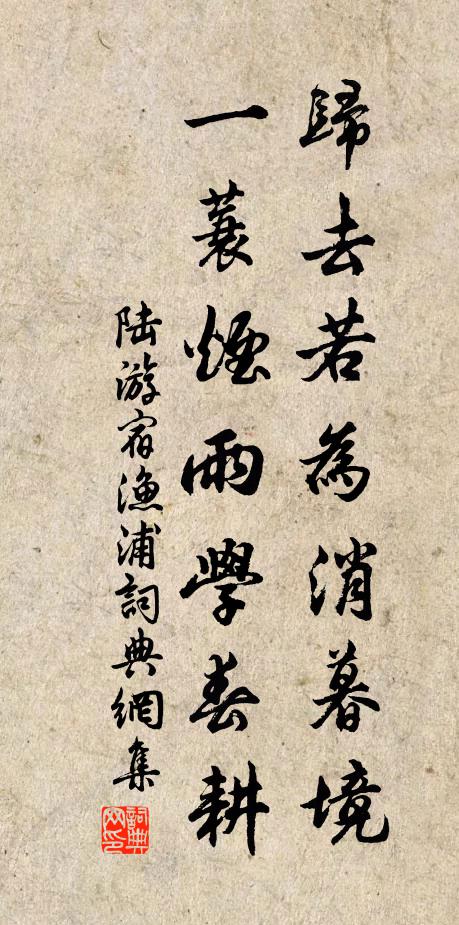 歸去若為消暮境
一蓑煙雨學春耕
陸游宿漁浦詞典網集
詞典网印